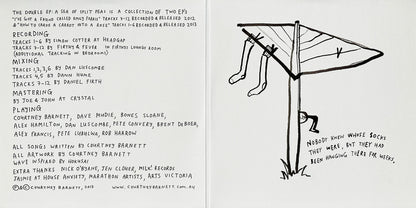 THE DOUBLE EP: A SEA OF SPLIT PEAS IS A COLLECTION OF TWO EP'S
"I'VE GOT A FRIEND CALLED EMILY FERRIS" TRACKS 7-12, RECORDED & RELEASED 2012
& "HOW TO CARVE A CARROT INTO A ROSE" TRACKS 1-6 RECORDED & RELEASED 2013
RECORDING
TRACKS 1-6 BY SIMON COTTER AT HEADGAP
TRACKS 7-12 BY FIRTHY & FEVER IN FIRTHYS LOUNGE ROOM
(ADDITIONAL TRACKING IN BEDROOMS)
MIXING
TRACKS 1,2,3,6 BY DAN LUSCOMBE
TRACKS 4,5 BY DANN HUME
TRACKS 7-12 BY DANIEL FIRTH
MASTERING
BY JOE & JOHN AT CRYSTAL
PLAYING
COURTNEY BARNETT, DAVE MUDIE, BONES SLOANE,
ALEX HAMILTON, DAN LUSCOMBE, PETE CONVERY, BRENT DEBOER,
ALEX FRANCIS, PETE CUBILLO, ROB HARROW
ALL SONGS WRITTEN BY COURTNEY BARNETT
ALL ARTWORK BY COURTNEY BARNETT
WAVE INSPIRED BY HOKUSAI
EXTRA THANKS NICK O'BYRNE, JEN CLOHER, MILK! RECORDS
JAIMIE AT HOUSE ANXIETY, MARATHON ARTISTS, ARTS VICTORIA
℗&© COURTNEY BARNETT, 2013 WWW.COURTNEYBARNETT.COM.AU
NOBODY KNEW WHOSE SOCKS
THEY WERE, BUT THEY HAD
BEEN HANGING THERE FOR WEEKS.